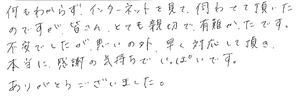 何もわからず、インターネットを見て、伺わせて頂いた
のですが、皆さん、とても親切で有難かったです。
不安でしたが、思いの外、早く対応して頂き、
本当に、感謝の気持ちで いっぱいです。
ありがとうございました。